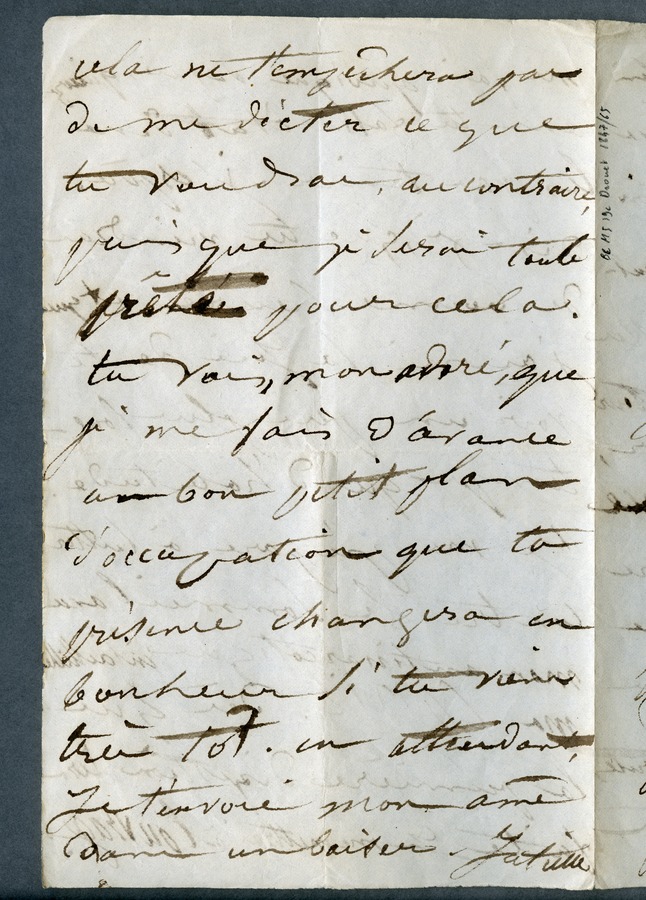 cela ne t'empêchera pas
de me dicter ce que
tu voudras, au contraire,
puisque je serai toute
prête pour cela.
tu vois, mon adoré, que
je me fais d'avance
un bon petit plan
d'occupation que ta
présence changera en
bonheur si tu viens
très tôt. en attendant,
Je t'envoie mon âme
dans un baiser. Juliette
BC MS 19c Drouet 1847/65